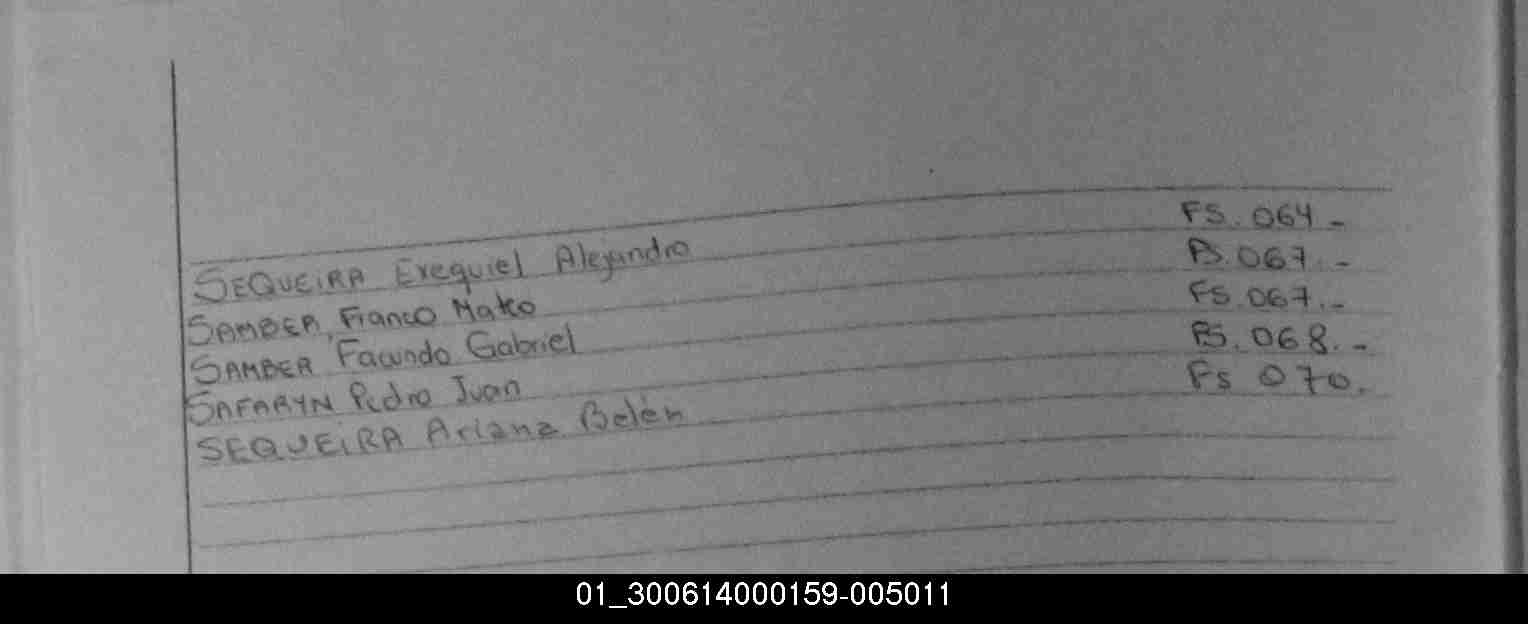 SEQUEIRA Exequiel Alejandro FS. 064 -
SAMBER, Franco Mateo FS. 067. -
SAMBER Facundo Gabriel FS. 067. -
SAFARYN Pedro Juan FS. 068. -
SEQUEIRA Ariana Belén Fs 070.
01_300614000159-005011